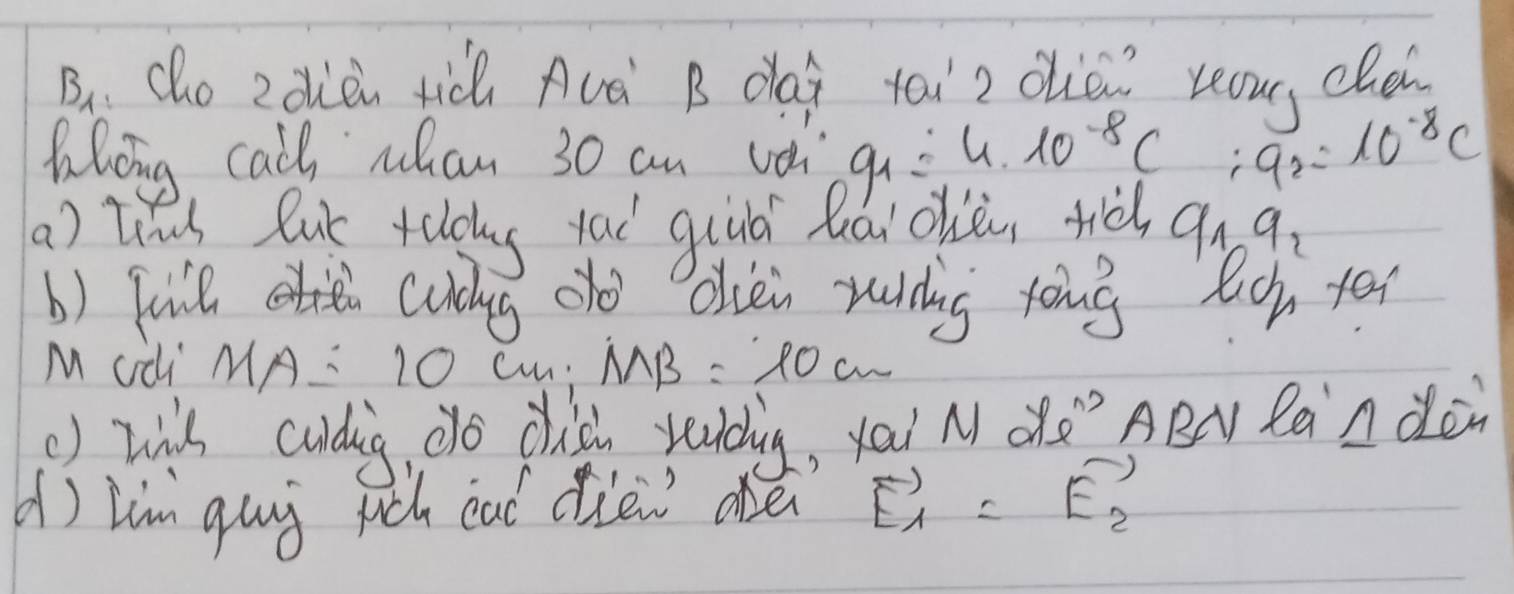 B1. Cho 2 điện tích A và B đặt tại 2 điểm trong chân
không cách nhau 30 cm với q1 = 4. 10^-8 C ; q2 = 10^-8 C
a) Tính lực tương tác giữa hai điện tích q1 q2
b) Tính cường độ điện trường tổng hợp tại
M với MA = 10 cm; MB = 10 cm
c) Tính cường độ điện trường tại N để ABN là Δ đều
d) Tìm quỹ tích các điểm để E⃗1 = E⃗2